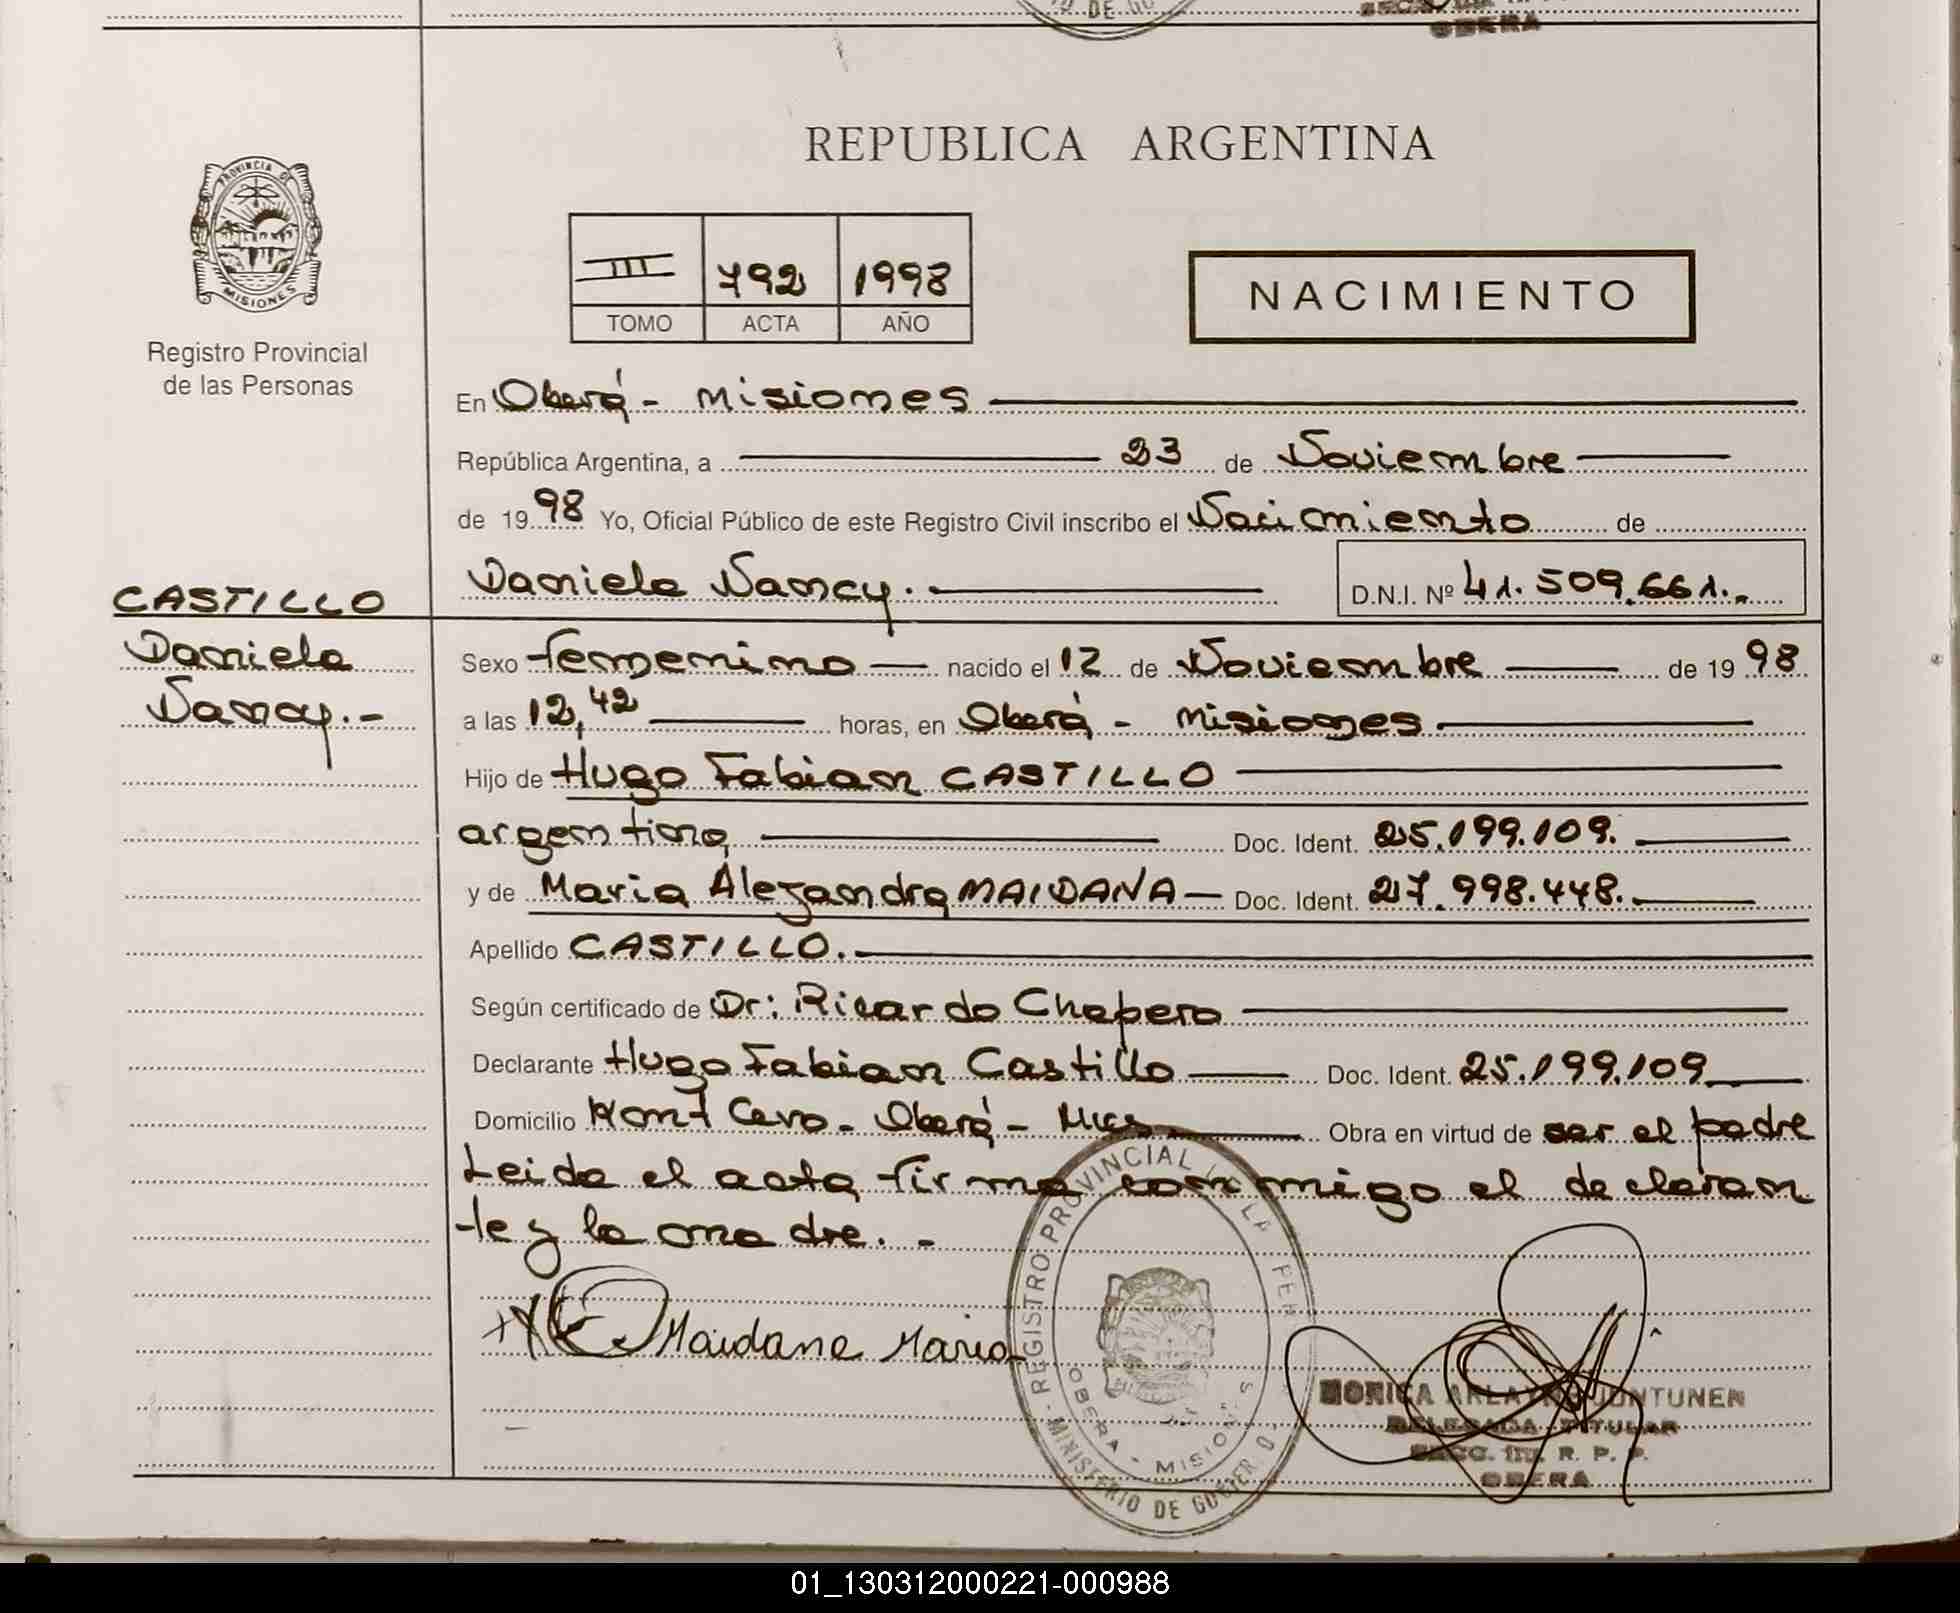 OBERA
REPUBLICA ARGENTINA
PROVINCIA DE
MISIONES
Registro Provincial
de las Personas
III 792 1998
TOMO ACTA AÑO
NACIMIENTO
En Oberá - Misiones
República Argentina, a 23 de Noviembre
de 1998 Yo, Oficial Público de este Registro Civil inscribo el Nacimiento de
Daniela Nancy. D.N.I. Nº 41.509.661.-
CASTILLO
Daniela
Nancy.-
Sexo femenino nacido el 12 de Noviembre de 1998
a las 12,42 horas, en Oberá - Misiones
Hijo de Hugo Fabian CASTILLO
argentino, Doc. Ident. 25.199.109.
y de Maria Alejandra MAIDANA Doc. Ident. 27.998.448.
Apellido CASTILLO.
Según certificado de Dr: Ricardo Chapero
Declarante Hugo Fabian Castillo Doc. Ident. 25.199.109
Domicilio Oberá - Mnes Obra en virtud de ser el padre
Leida el acta firma conmigo el declaran
te y la madre.-
Maidana Maria
REGISTRO PROVINCIAL DE LA PER
OBERA - MISIONES
MINISTERIO DE GOBIERNO
MONICA
DELEGADA TITULAR
SECC. III R. P. P.
OBERA
01_130312000221-000988